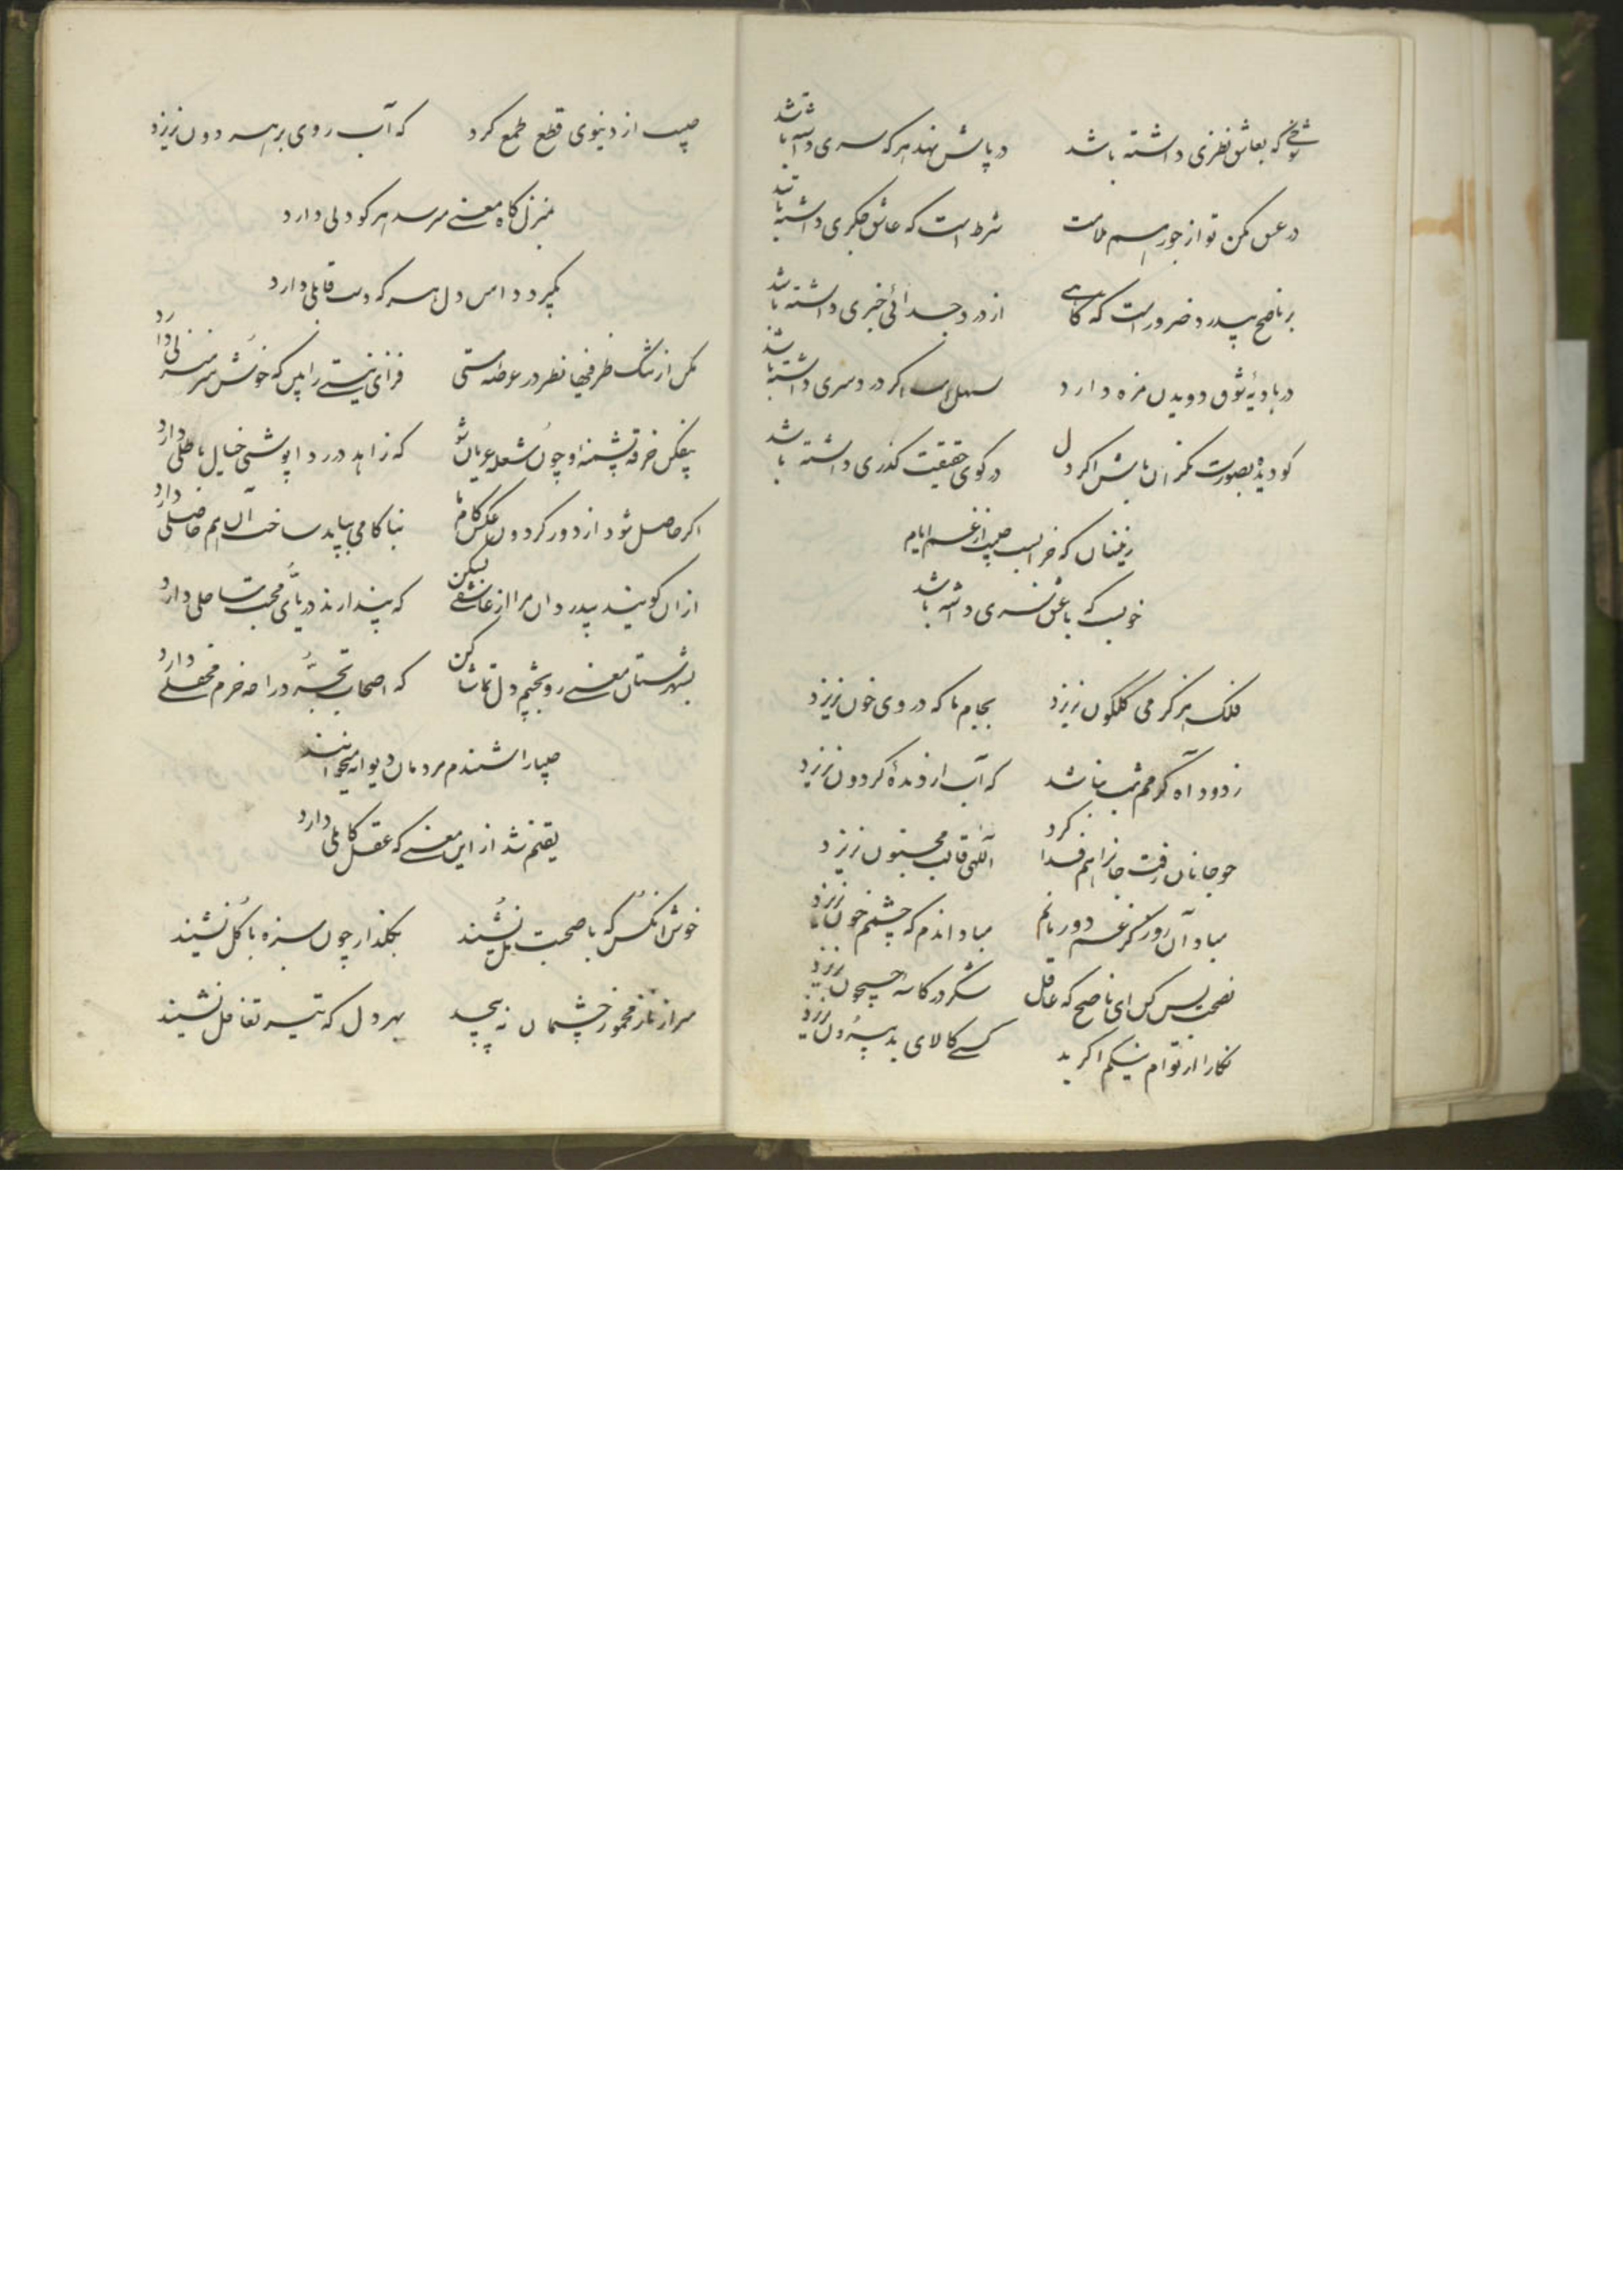 شوخی که بعاشق نظری داشته باشد در پاش نهد هر که سری داشته باشد
در عشق مکن تو از جور ملامت شرط است که عاشق جکری داشته باشد
بر ناصح بیدرد ضرور است که گاهے از درد جدائی خبری داشته باشد
در بادیهٔ شوق دویدن مزه دارد سهل است اکر دردسری داشته باشد
کو دیده بصورت نکران باش اکر دل در کوی حقیقت کذری داشته باشد
زینسان که خرابست حبیب از غم ایام
خوبست که با عشق سری داشته باشد
فلک هرکز می کلکون نریزد بجام ما که در وی خون نریزد
ز دود آه کرمم شب نباشد که آب از دیدهٔ کردون نریزد
چو جانان رفت جانرا هم فدا کرد آلهی قالب مجنون نریزد
مباد آن روز کز غم دور مانم مباد اندم که چشمم خون نریزد
نصیحت بس کن ای ناصح که عاقل شکر در کاسهٔ نریزد
نکارا از توام اکر بد کسے کالای بد بیرون نریزد
حبیب از دنیوی قطع طمع کرد که آب روی بر هر دون نریزد
بمنزل کاه معنے میرسد هر کو دلی دارد
بکیرد دامن دل هر که دست قابلی دارد
مکن از تنک ظرفیها نظر در ورطهٔ مستی فزای نیستے را بین که خوش سر منزلی دارد
بیفکن خرقه پشمینه و چون شعله عریان شو که زاهد در ردا پوشی خیال باطلی دارد
اکر حاصل شود از دور کردون عکس کام ما بناکامی بباید ساخت آن هم حاصلی دارد
ازان کویند بیدردان مرا از عاشقے بس کن که پندارند دریای محبت ساحلی دارد
بشهرستان معنے رو بچشم دل تماشا کن که اصحاب تجرد را چه خرم محفلے دارد
حبیبا را شنیدم مردمان دیوانه میخوانند
یقینم شد از این معنے که عقل کاملی دارد
خوش انکس که با صحبت مل نشیند بکلذار چون سبزه با کل نشیند
سر از ناز مخمور چشمان نه پیچد بهر دل که تیر تغافل نشیند